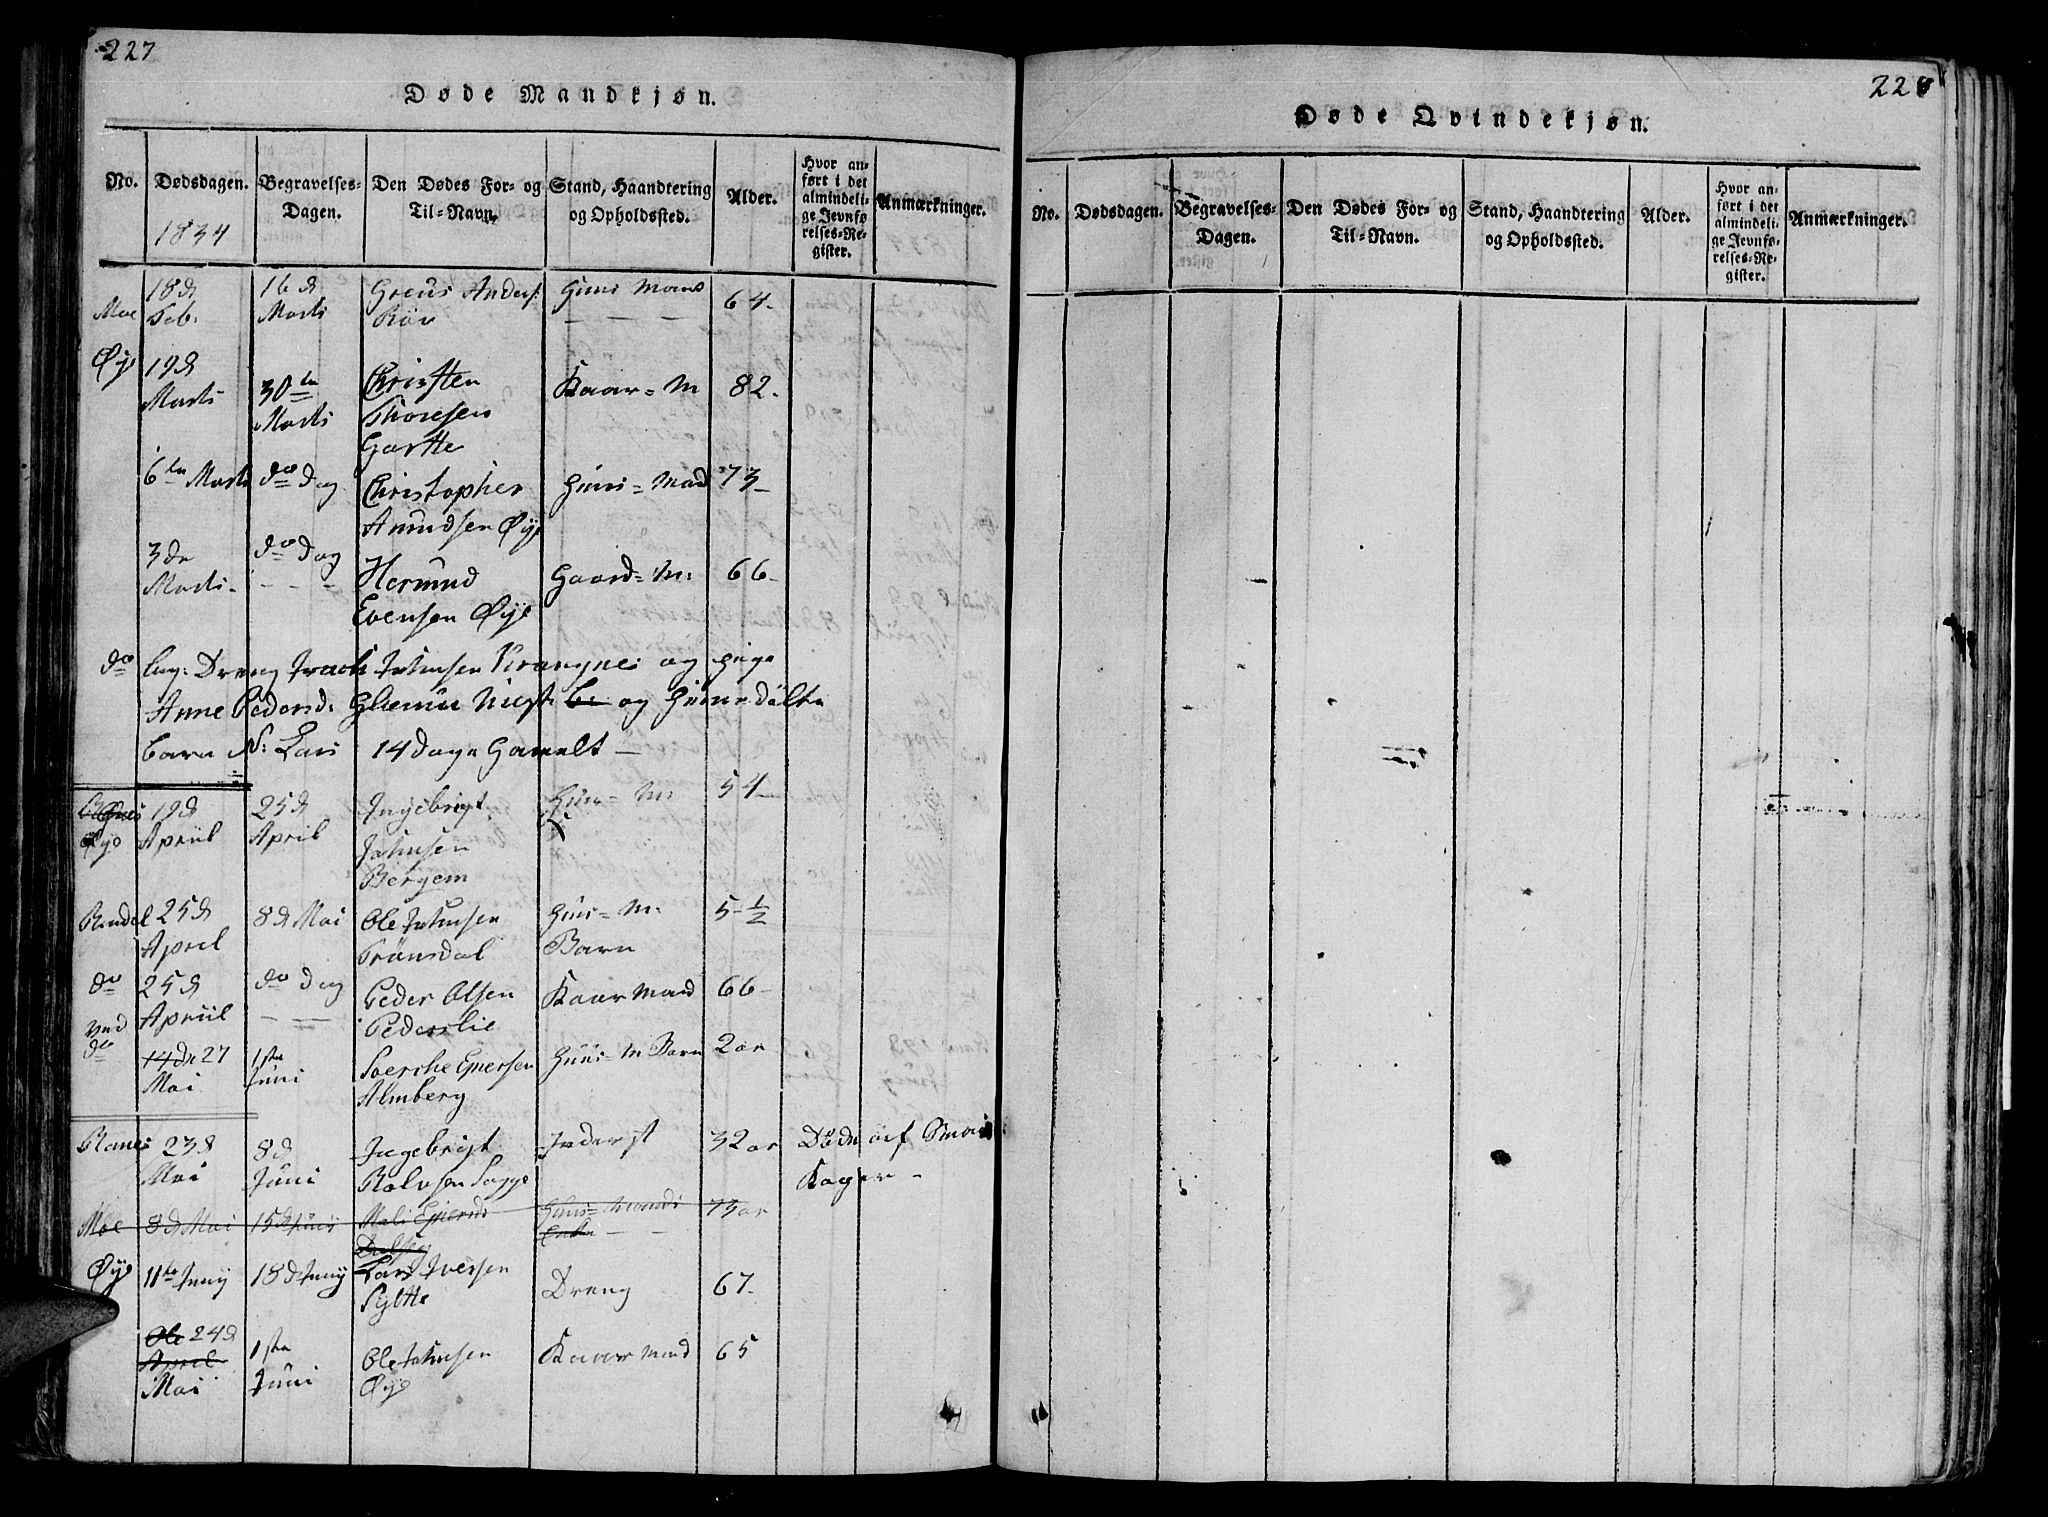 227
Døde Mandkjøn.
No.
Dødsdagen.
1834
Begravelses-
Dagen.
Den Dødes For- og
Til-Navn.
Stand, Haandtering
og Opholdssted.
Alder.
Hvor an-
ført i det
almindeli-
ge Jevnfø
relses-Re-
gister.
Anmærkninger.
Moe 18d Feb: 16d Marts Anders: Huus Mand 64-
Øye 19d Marts 30te Marts Christen Thoresen Kaar=M 82.
6te Marts do Dag Christopher Amundsen Øye Huus=Mand 73-
3de Marts- do Dag Hermund Evensen Øye Gaard=M: 66-
do Ung: Dreng Johnsen og Pige
Anne Pedersd: og
Barn N: Lars 14 Dage Gamelt -
Øye 19d Apriil 25d April Ingebrigt Johnsen Bergem Huus=M: 54-
Rindal 25d April 8d Mai Ole Johnsen Trönsdal Huus=M: Barn 5-1/2
do 25d Apriil do Dag Peder Olsen Pederslie Kaarmand 66-
ved do 14de 27 Mai 1ste Juni Einersen Almberg Huus=M Barn 2 ar
Ranes 23d Mai 8d Juni Ingebrigt Inderst 32 ar Döde af Smaa
Koper -
Moe 8d Mai 15d Juni Mali Huus=Mands Enke 73 ar
Øye 11te Juny 18d Juny Lars Iversen Sylte Dreng 67-
Ole 24d April Mai 1ste Juni Ole Johnsen Øye Kaarmand 65
Døde Qvindekjøn.
No.
Dødsdagen.
Begravelses-
Dagen.
Den Dødes For- og
Til-Navn.
Stand, Haandtering
og Opholdssted.
Alder.
Hvor an-
ført i det
almindeli-
ge Jevnfø-
relses-Re-
gister.
Anmærkninger.